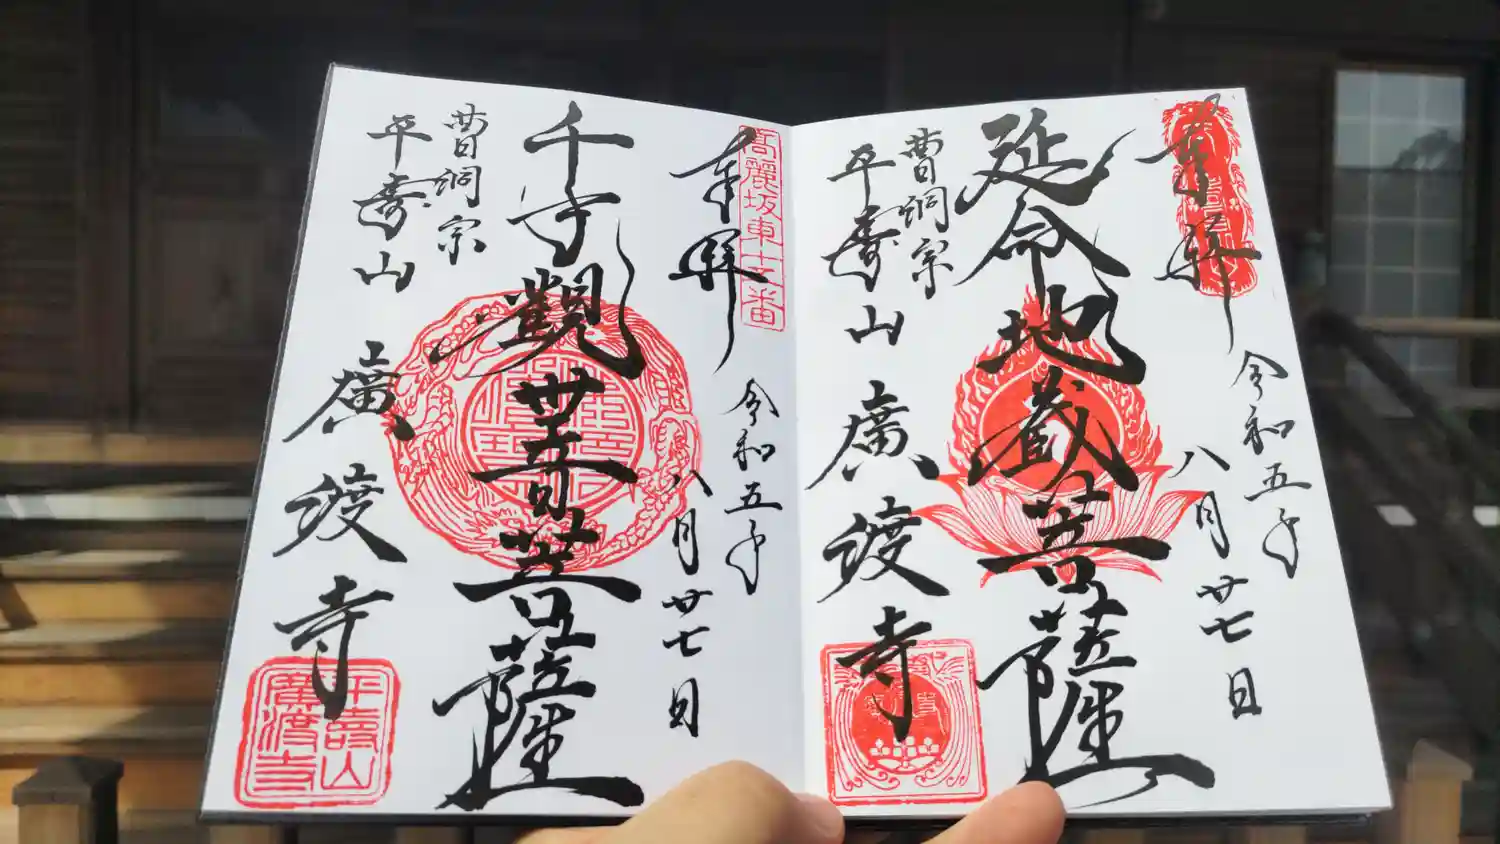 奉拝
令和五年
八月廿七日
延命地蔵菩薩
曹洞宗
平壽山
廣渡寺
奉拝
高麗坂東十三番
令和五年
八月廿七日
千手觀世音菩薩
曹洞宗
平壽山
廣渡寺
平壽山
廣渡寺